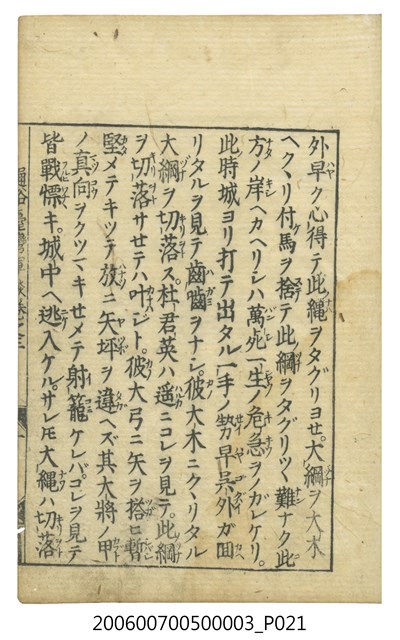 外早ク心得テ此縄ヲタグリヨセ。大綱ヲ大木
ヘクヽリ付馬ヲ捨テ此綱ヲタグリツヽ難ナク此
方ノ岸ヘカヘリシハ萬死一生ノ危急ヲノガレケリ。
此時城ヨリ打テ出タル一手ノ勢早呉外ガ回
リタルヲ見テ齒嚙ヲナシ。彼大木ニクヽリタル
大綱ヲ切落ス。杜君英ハ遥ニコレヲ見テ。此綱
ヲ切落サセテハ叶ジト。彼大弓ニ矢ヲ搭ヒ暫
堅メテキツテ放ニ矢坪ヲ違ヘズ其大將ノ甲
ノ真向ヲクツマキせメテ射籠ケレバ。コレヲ見テ
皆戰慄キ。城中ヘ逃入ケル。サレ𪜈大縄ハ切落
200600700500003_P021